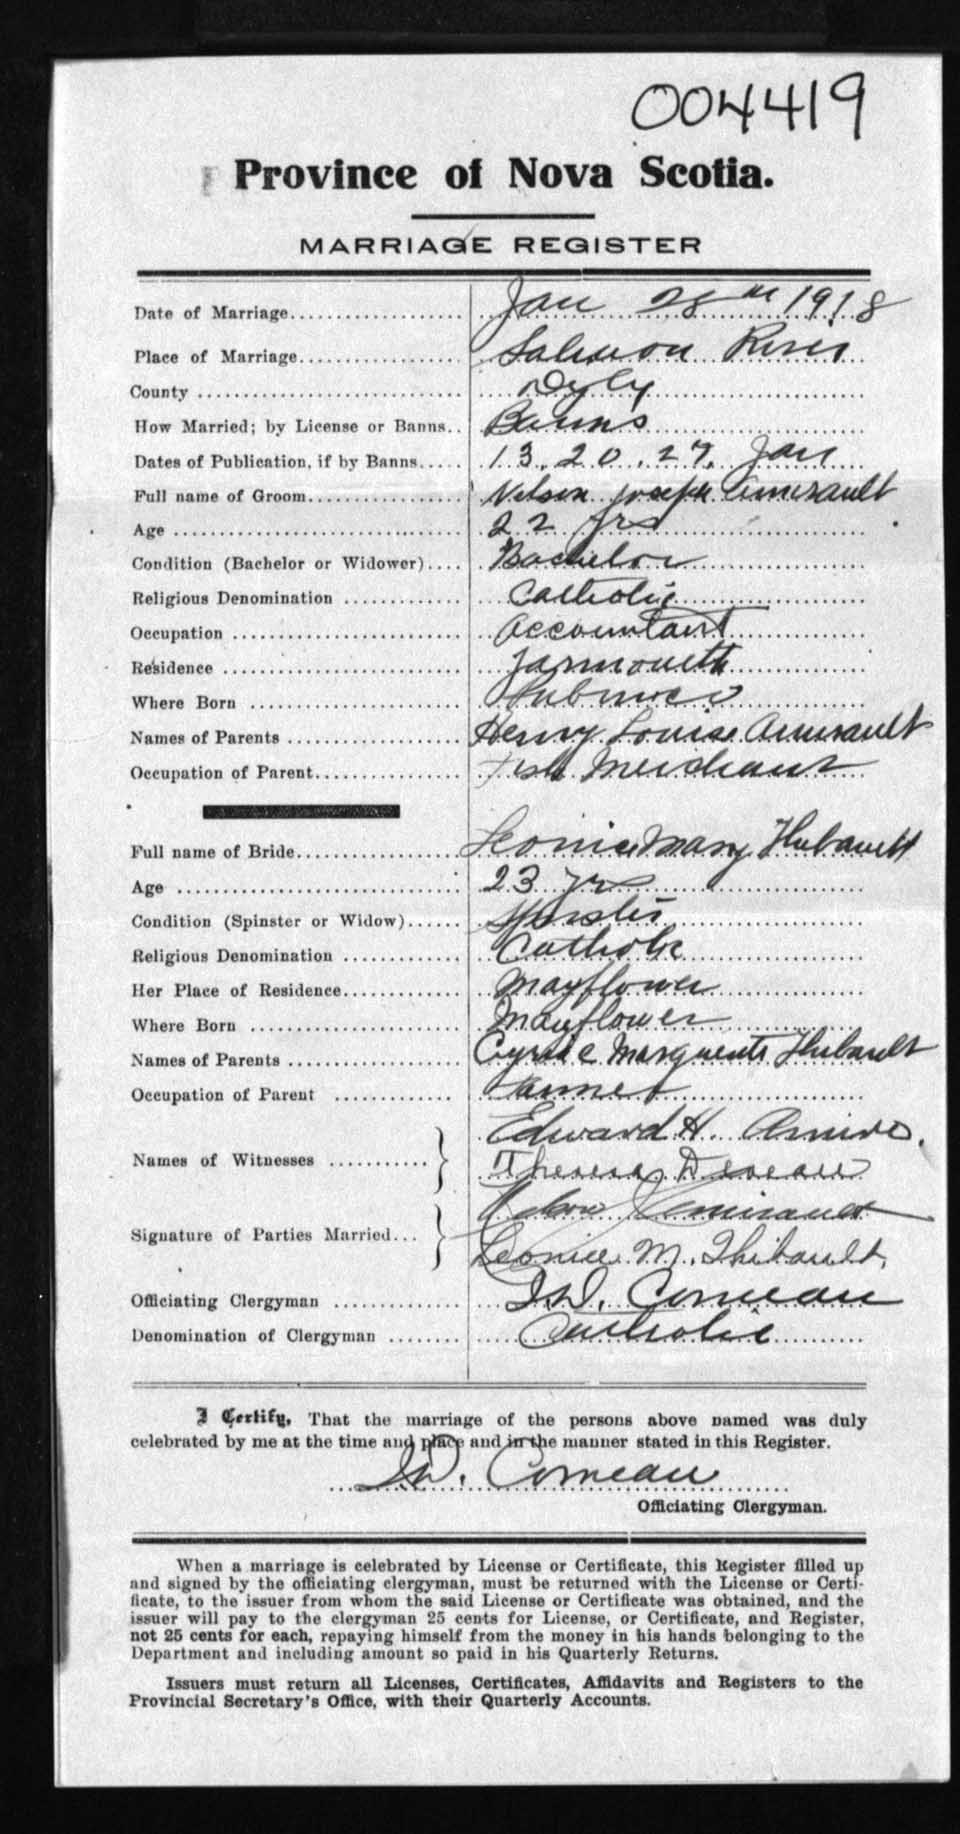 004419
Province of Nova Scotia.
MARRIAGE REGISTER
Date of Marriage.................... Jan 28th 1918
Place of Marriage.................. Salmon River
County ............................. Digby
How Married; by License or Banns.. Banns
Dates of Publication, if by Banns..... 13, 20, 27, Jan
Full name of Groom................. Nelson Joseph Amirault
Age ................................ 22 yrs
Condition (Bachelor or Widower).... Bachelor
Religious Denomination ............. Catholic
Occupation ......................... Accountant
Residence .......................... Yarmouth
Where Born ....................... Pubnico
Names of Parents ................... Henry Louise Amirault
Occupation of Parent................ Fish Merchant
Full name of Bride.................. Leonice Mary Thibault
Age ............................... 23 yrs
Condition (Spinster or Widow)...... Spinster
Religious Denomination ............. Catholic
Her Place of Residence............. Mayflower
Where Born ....................... Mayflower
Names of Parents ................... Marguerite Thibault
Occupation of Parent .............. Farmer
Names of Witnesses ........... Edward H. Amiro.
Theresa Deveau
Signature of Parties Married... Nelson J Amirault
Leonice M. Thibault.
Officiating Clergyman .............. Comeau
Denomination of Clergyman ........ Catholic
I Certify, That the marriage of the persons above named was duly
celebrated by me at the time and place and in the manner stated in this Register.
Comeau
Officiating Clergyman.
When a marriage is celebrated by License or Certificate, this Register filled up
and signed by the officiating clergyman, must be returned with the License or Certi-
ficate, to the issuer from whom the said License or Certificate was obtained, and the
issuer will pay to the clergyman 25 cents for License, or Certificate, and Register,
not 25 cents for each, repaying himself from the money in his hands belonging to the
Department and including amount so paid in his Quarterly Returns.
Issuers must return all Licenses, Certificates, Affidavits and Registers to the
Provincial Secretary's Office, with their Quarterly Accounts.